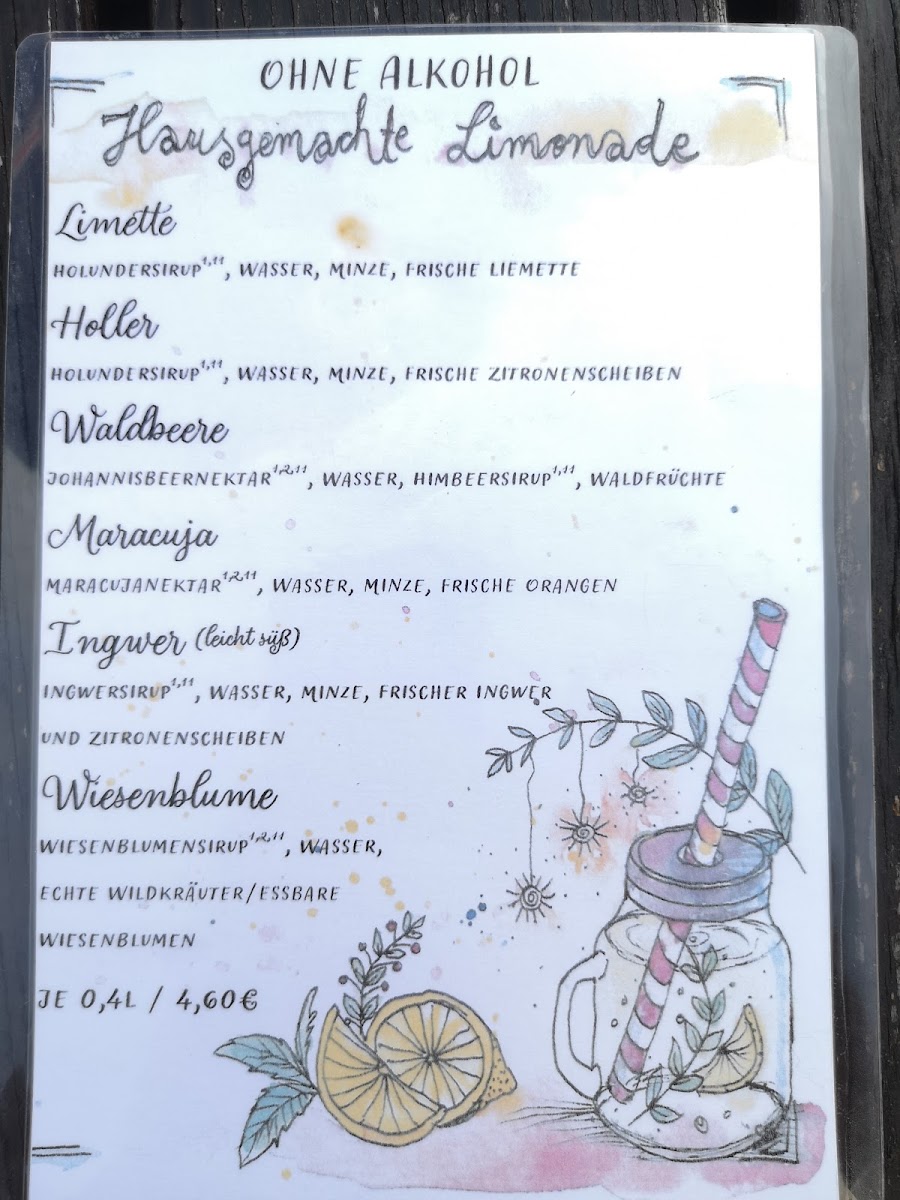 OHNE ALKOHOL
Hausgemachte Limonade
Limette
HOLUNDERSIRUP1,11, WASSER, MINZE, FRISCHE LIEMETTE
Holler
HOLUNDERSIRUP1,11, WASSER, MINZE, FRISCHE ZITRONENSCHEIBEN
Waldbeere
JOHANNISBEERNEKTAR1,2,11, WASSER, HIMBEERSIRUP1,11, WALDFRÜCHTE
Maracuja
MARACUJANEKTAR1,2,11, WASSER, MINZE, FRISCHE ORANGEN
Ingwer (leicht süß)
INGWERSIRUP1,11, WASSER, MINZE, FRISCHER INGWER
UND ZITRONENSCHEIBEN
Wiesenblume
WIESENBLUMENSIRUP1,2,11, WASSER,
ECHTE WILDKRÄUTER/ESSBARE
WIESENBLUMEN
JE 0,4L / 4,60€